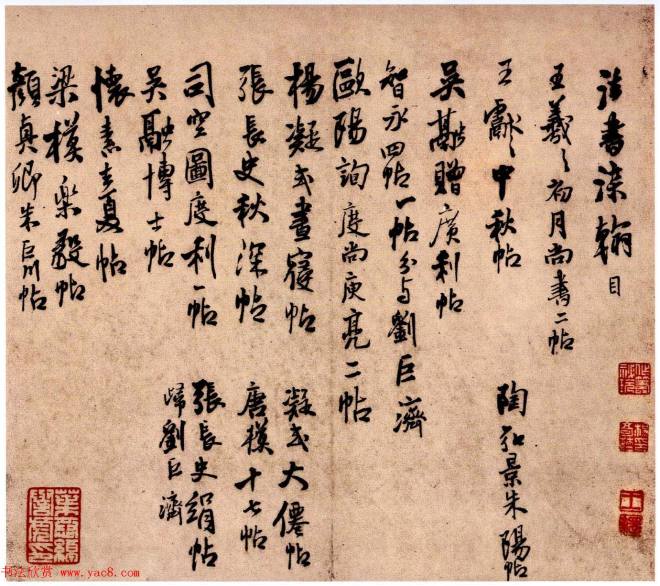 法書涤翰目
王羲之初月尚書二帖
王獻之中秋帖
陶弘景朱陽帖
吳融贈廣利帖
智永四帖一帖分与劉巨濟
歐陽詢度尚庾亮二帖
楊凝式晝寢帖
凝式大僊帖
張長史秋深帖
唐模十七帖
司空圖度利一帖
張長史絹帖
歸劉巨濟
吳融博士帖
懷素立夏帖
梁模樂毅帖
顏真卿朱巨川帖
书法欣赏 www.yac8.com